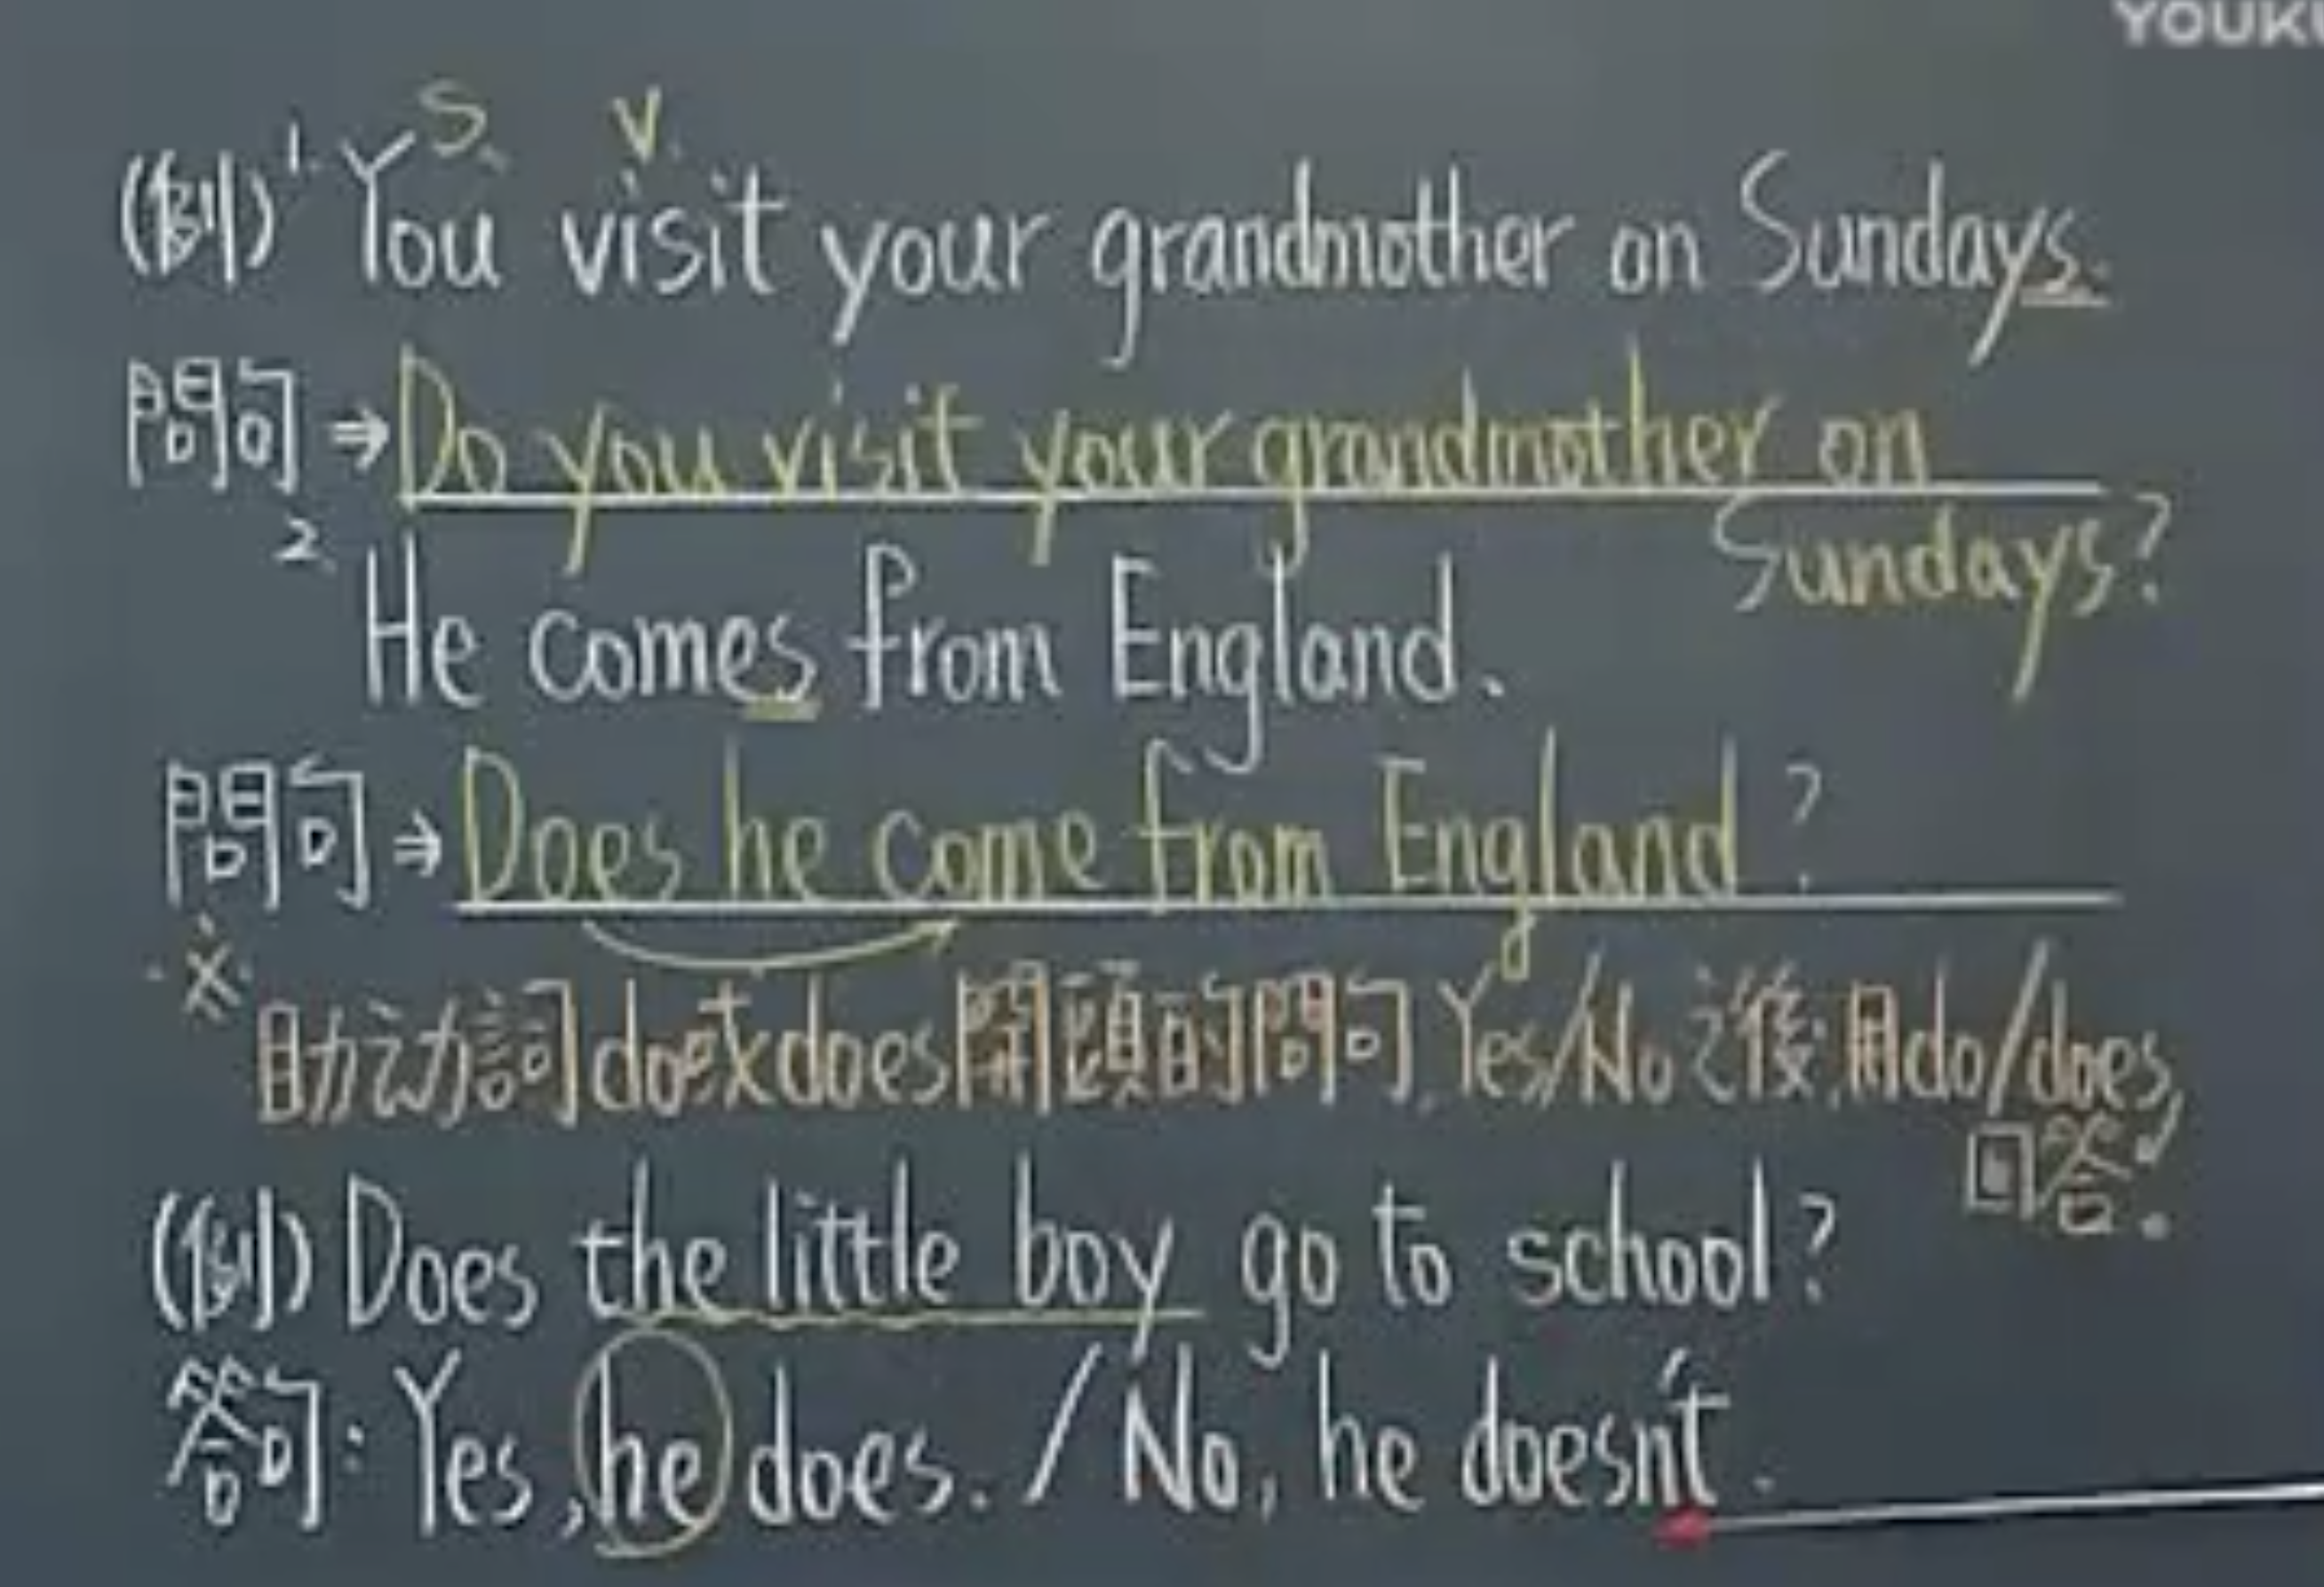 YOUKU
S. V.
(例) 1. You visit your grandmother on Sundays.
問句 ⇒ Do you visit your grandmother on
Sundays?
2. He comes from England.
問句 ⇒ Does he come from England?
※ 助动詞 do或does開頭的問句, Yes/No 之後, 用do/does,
回答.
(例) Does the little boy go to school?
答句: Yes, he does. / No, he doesn't.